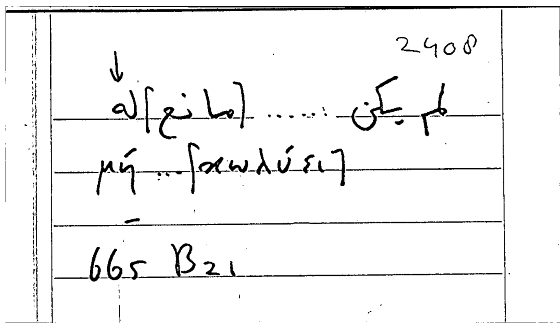 2408
↓
لم يكن ...... [مانع] له
μή ... [κωλύει]
–
665 B21